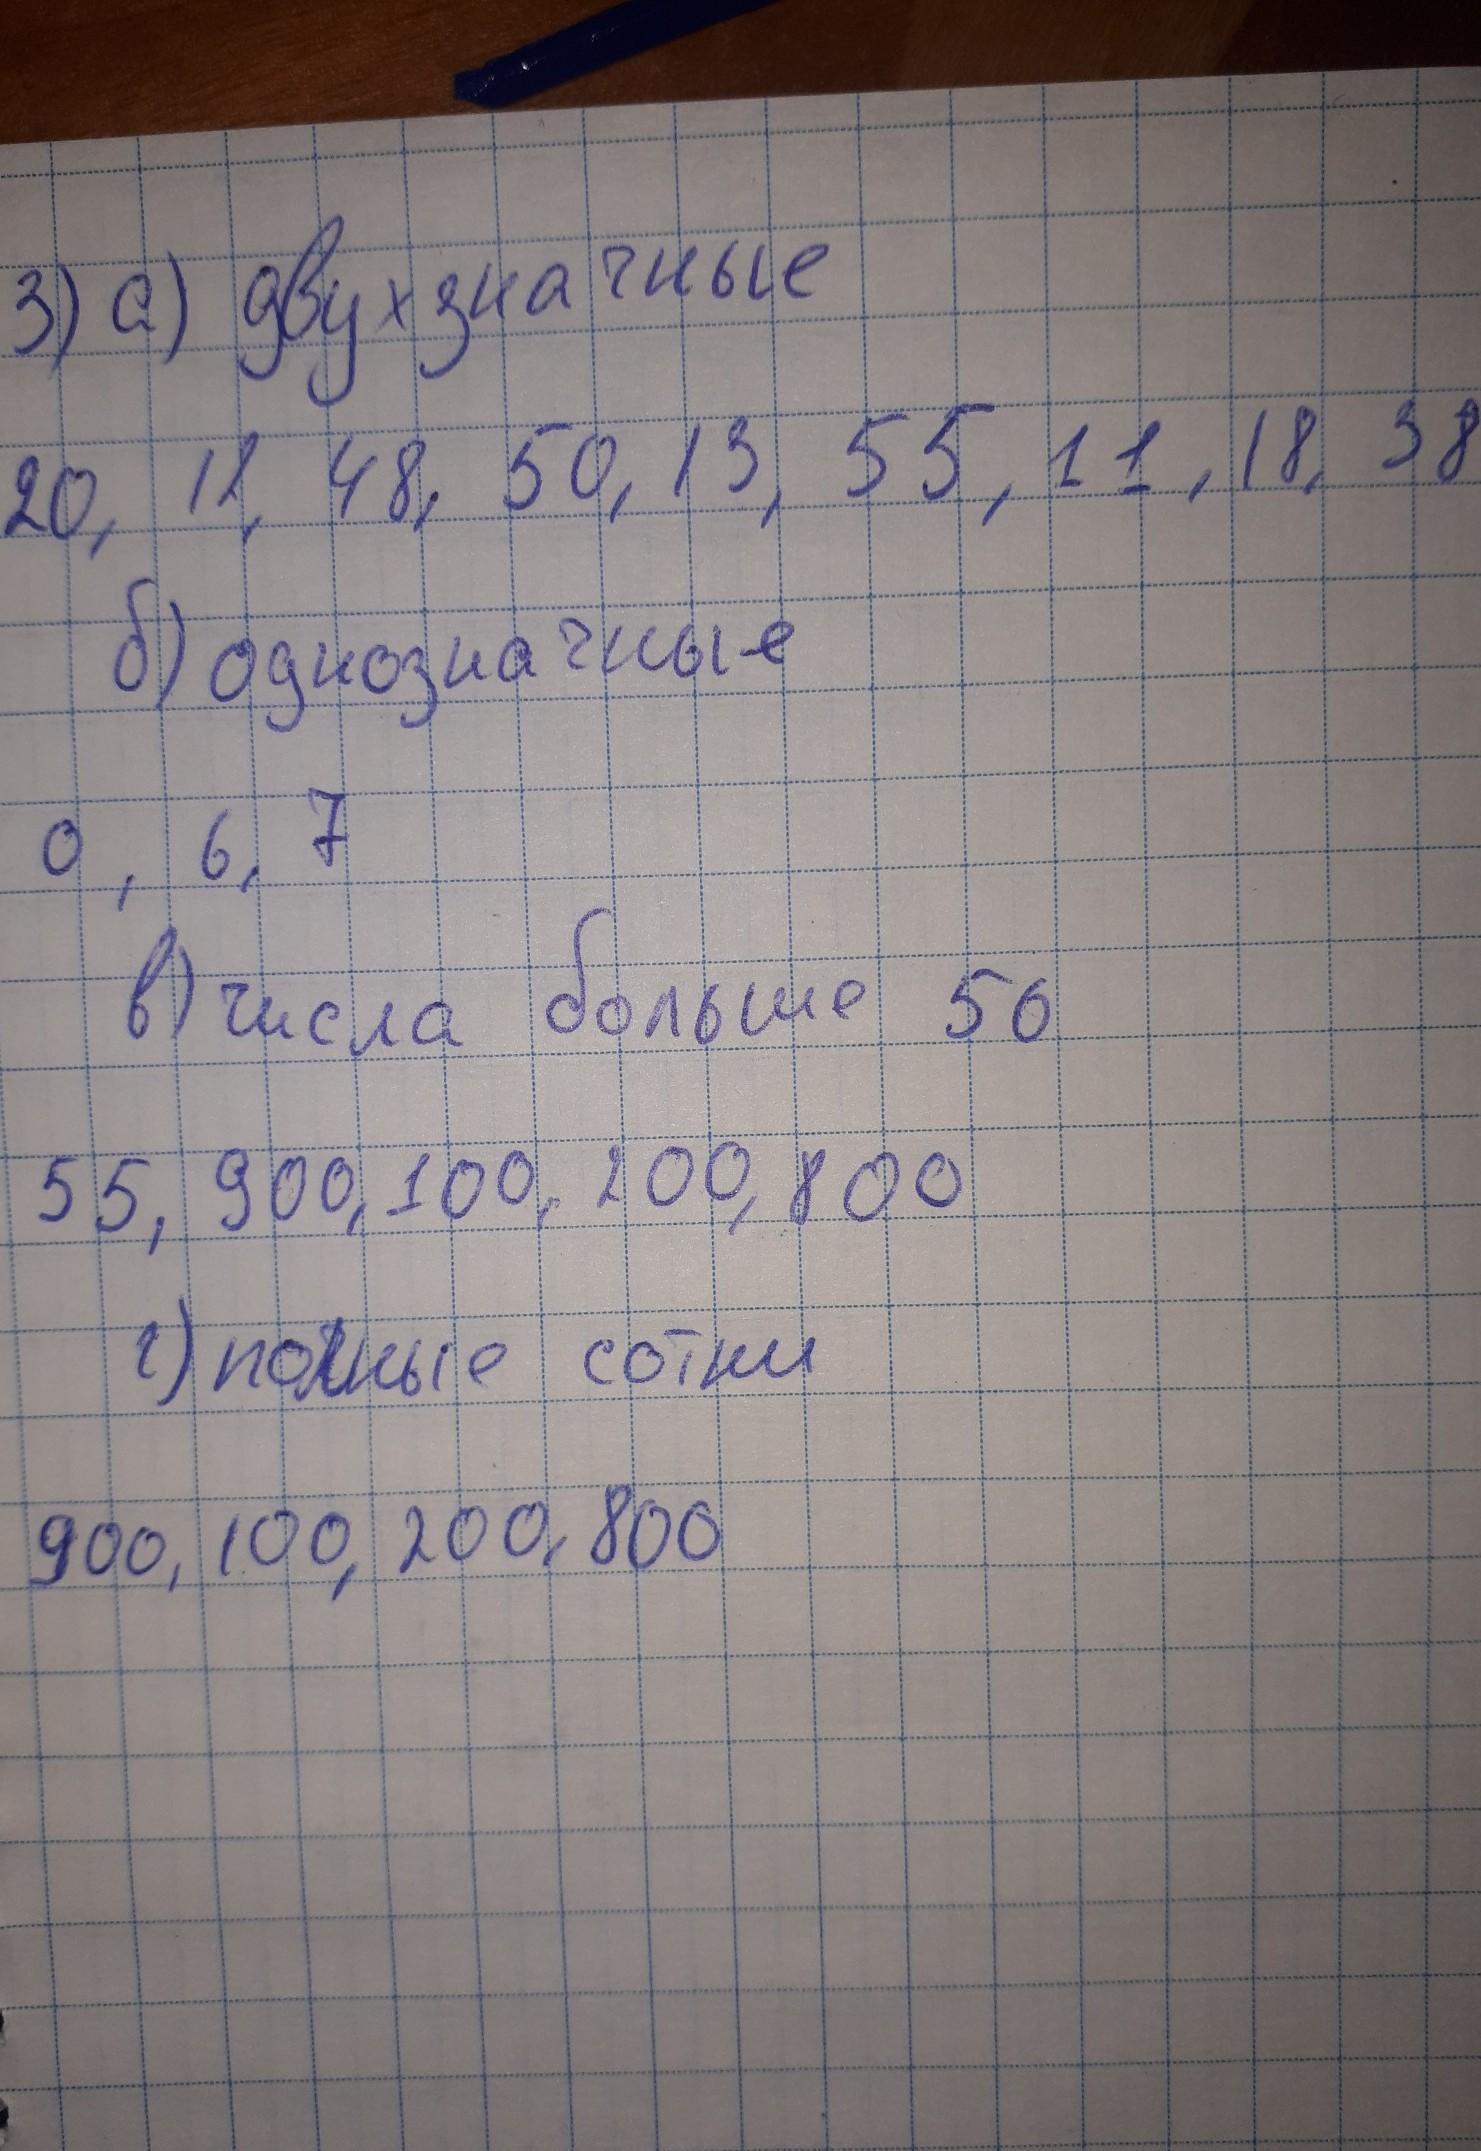 3) а) двухзначные
20, 12, 48, 50, 13, 55, 11, 18, 38
б) однозначные
0, 6, 7
в) числа больше 50
55, 900, 100, 200, 800
г) полные сотни
900, 100, 200, 800